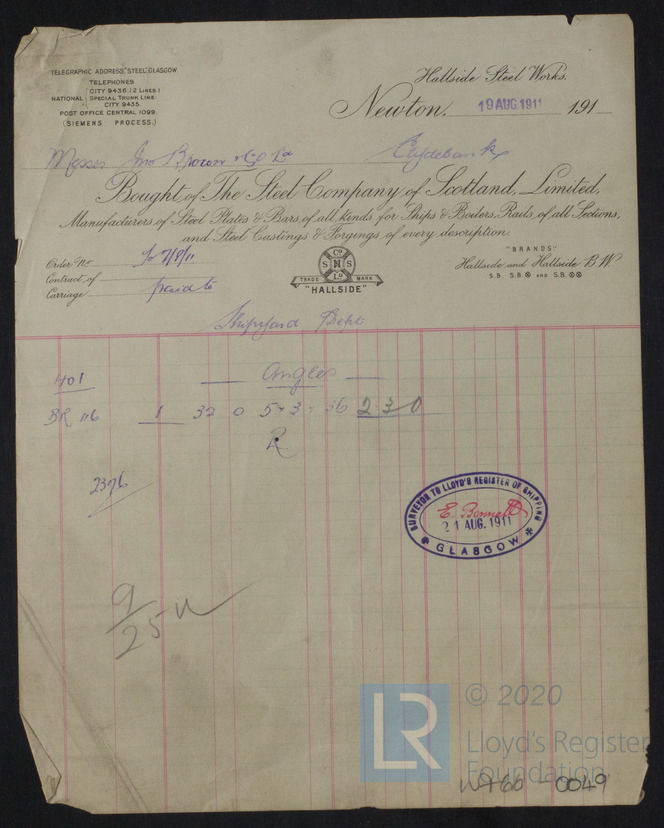 TELEGRAPHIC ADDRESS, "STEEL", GLASGOW.
TELEPHONES
NATIONAL { CITY 9436 (2 LINES)
SPECIAL TRUNK LINE:
CITY 9435.
POST OFFICE CENTRAL 1099.
(SIEMENS PROCESS.)
Hallside Steel Works.
Newton, 19 AUG 1911 191
Messrs Jno Brown & Co Ld Clydebank
Bought of The Steel Company of Scotland, Limited,
Manufacturers of Steel Plates & Bars of all kinds for Ships & Boilers, Rails of all Sections,
and Steel Castings & Forgings of every description.
Order No 7/8/11
Contract of
Carriage paid to
S Co N S Ld
TRADE MARK
"HALLSIDE"
"BRANDS"
Hallside and Hallside B.W.
S.B. S.B.⊗ AND S.B.⊗⊗
Shipyard Dept
401 Angles
BR 116 1 32 0 5 × 3 × 36 2 3 0
R
2376
SURVEYOR TO LLOYD'S REGISTER OF SHIPPING
E. Bennett
21 AUG. 1911
GLASGOW
9/25
LR
© 2020
Lloyd's Register
Foundation
W960-0049